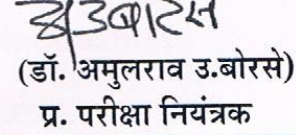 (डॉ. अमुलराव उ.बोरसे)
प्र. परीक्षा नियंत्रक